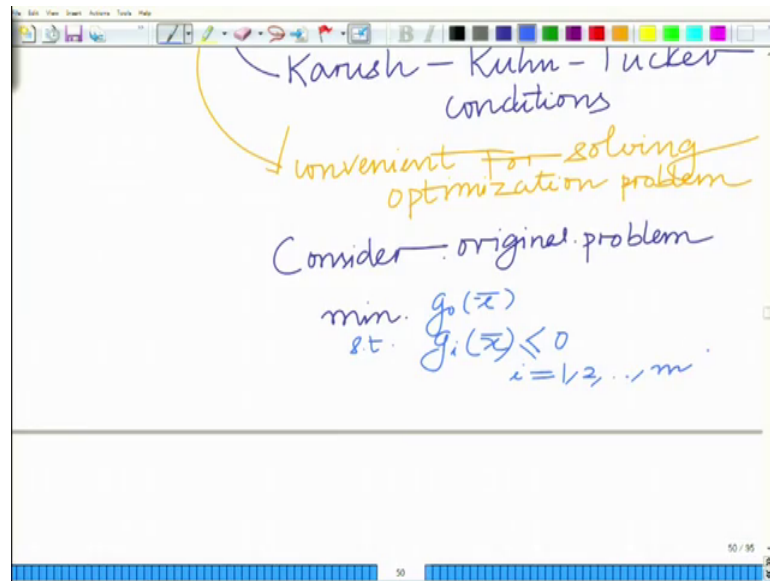 File Edit View Insert Actions Tools Help
Karush - Kuhn - Tucker
conditions
convenient for solving
optimization problem
Consider original problem
min. g₀(x̄)
s.t. gᵢ(x̄) ≤ 0
i = 1, 2, .., m
50 / 95
50